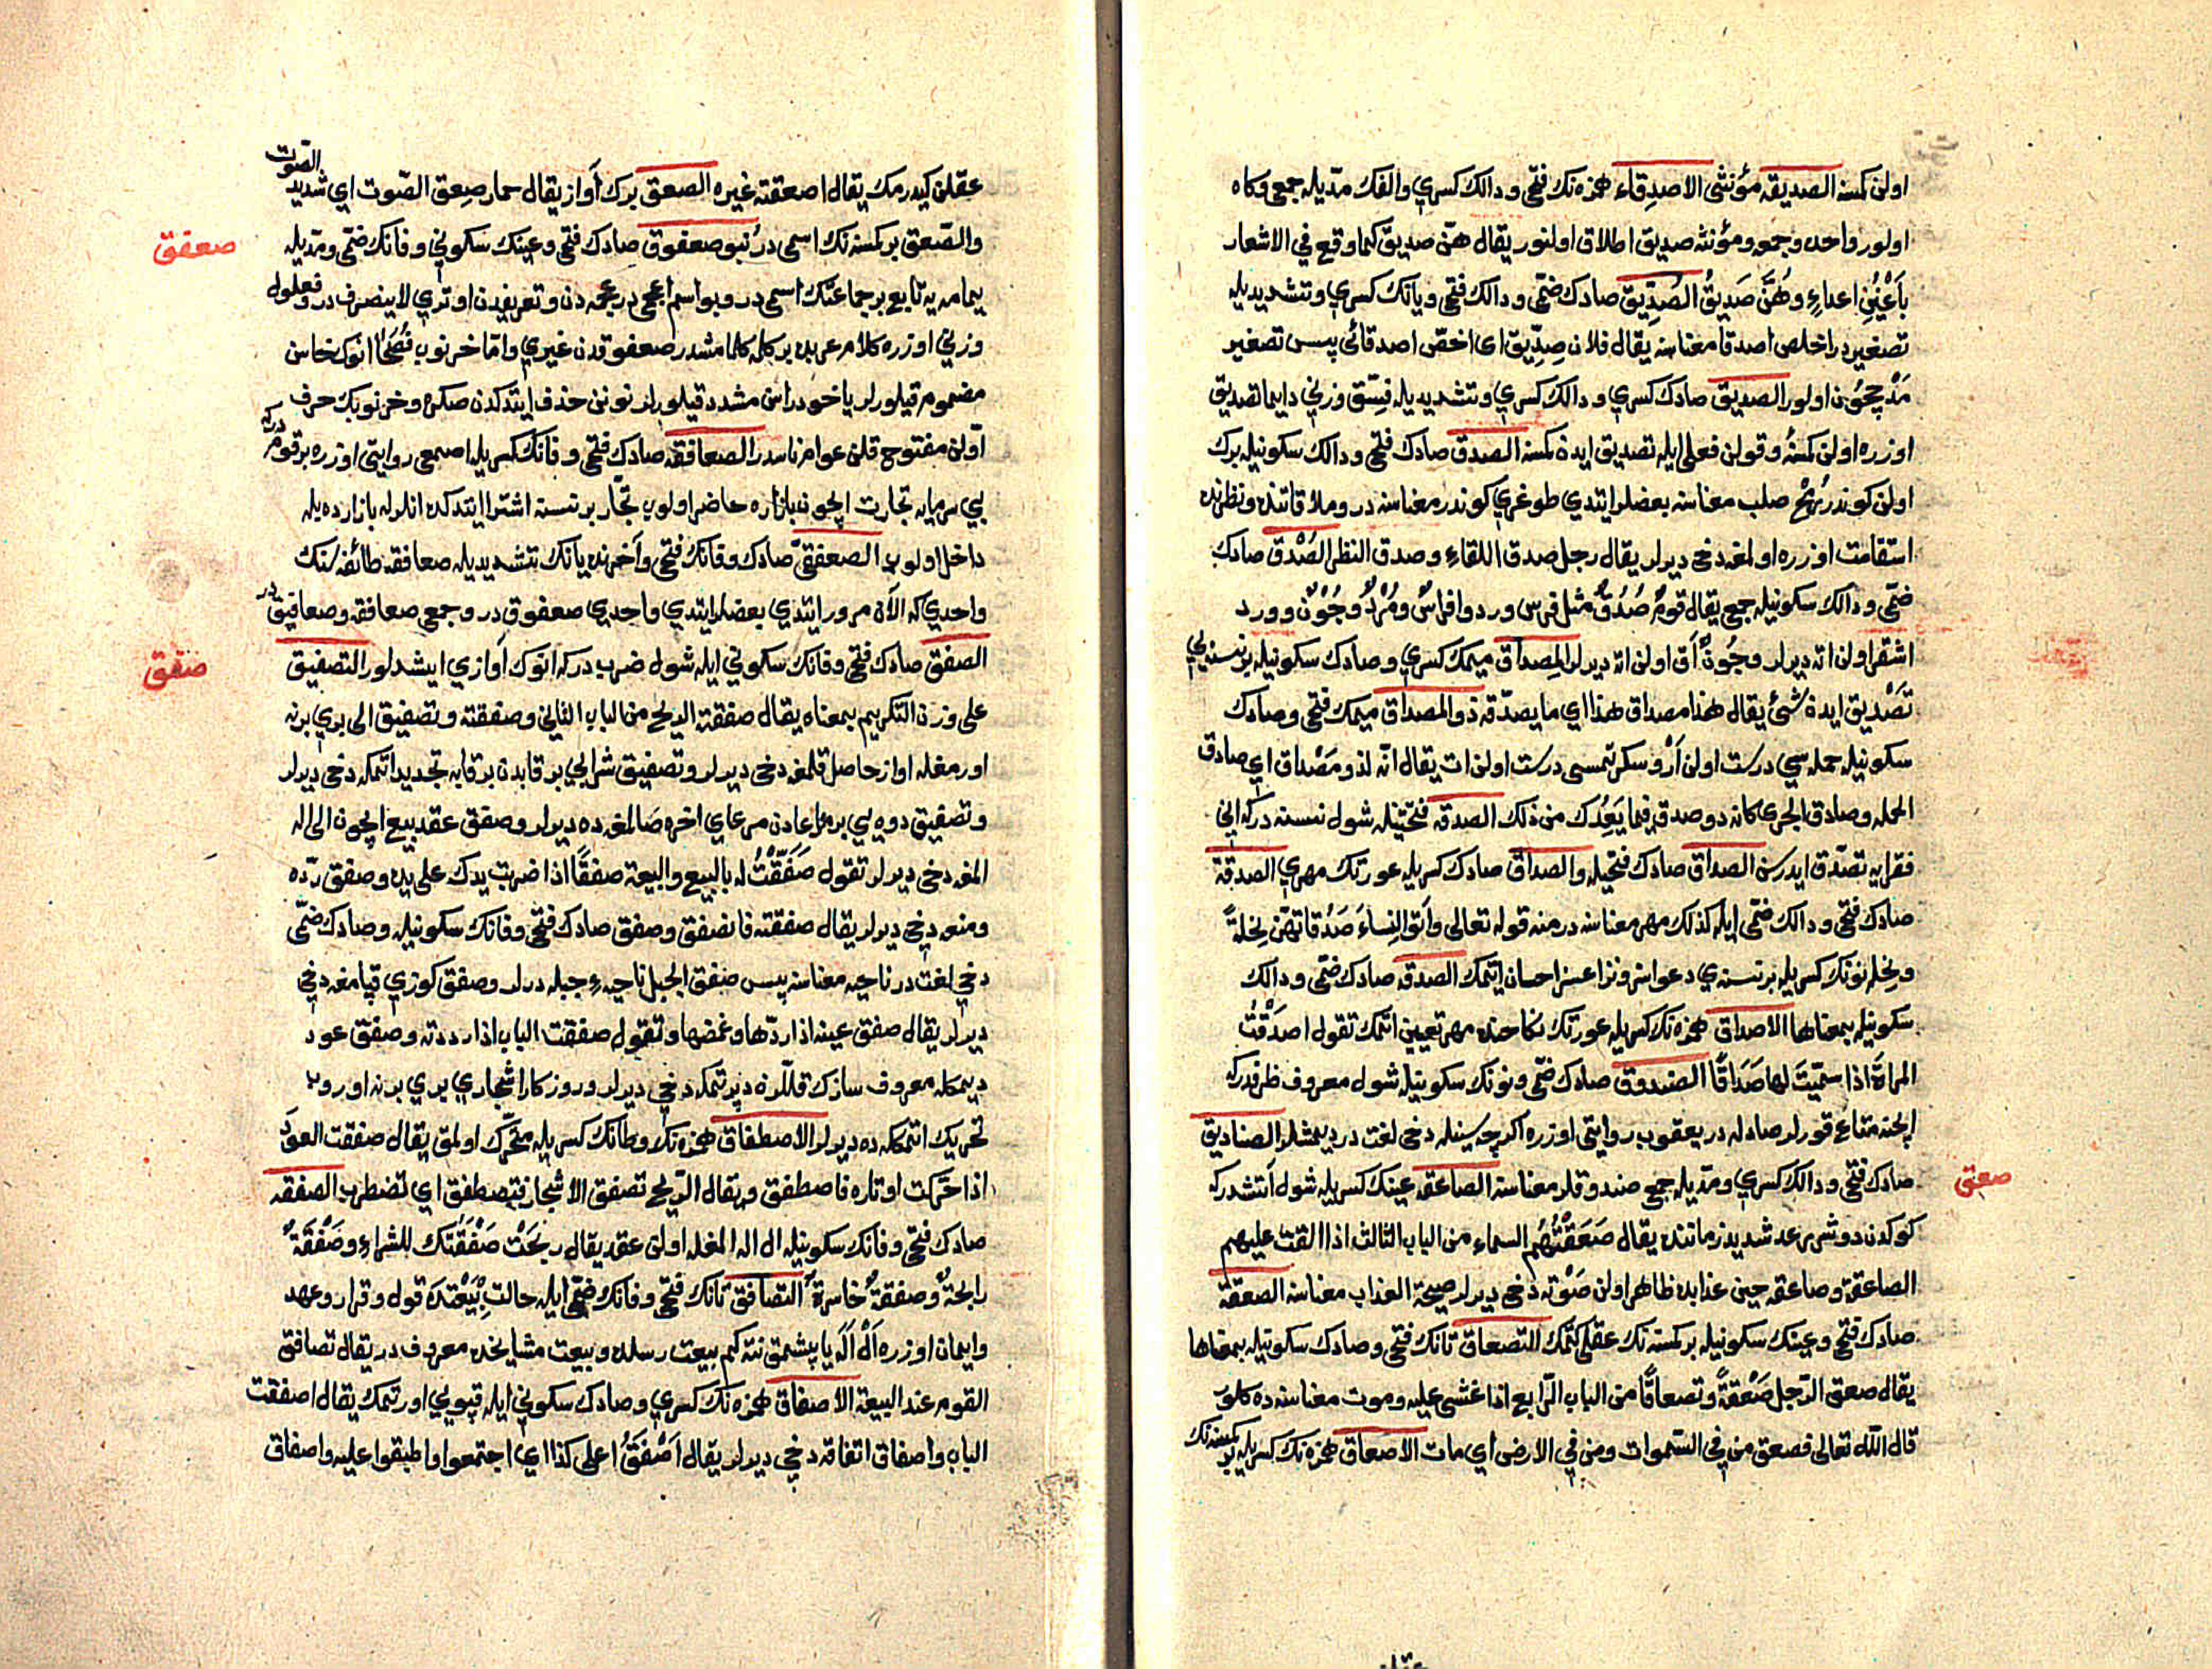 اولن كسنه الصديقه مؤنثى الاصدقاء همزه نك فتحى و دالك كسري والفك مديله جمعى و كاه
اولور واحده و جمعه و مؤنثه صديق اطلاق اولنور يقال هنّ صديق كما وقع في الاشعار
بأعْيُنِ اعداءٍ و هُنَّ صَدِيقُ الصُدَيِّق صادك ضمّى و دالك فتحى و يانك كسري و تشديديله
تصغيردر اخلص اصدقا معناسنه يقال فلان صدّيق اى اخصّ اصدقائى پس تصغير
مَدْح ايچون اولور الصديق صادك كسري و دالك كسري و تشديديله فسّق وزني دايما تصديق
اوزره اولن كمسنه و قولن فعلى ايله تصديق ايدن كمسنه الصدق صادك فتحى و دالك سكونيله برك
اولن كوندر رُمْح صلب معناسنه بعضلر ايتدي طوغري كوندر معناسنه در و ملاقاتنده و نظرنده
استقامت اوزره اولمغه دخى ديرلر يقال رجل صدق اللقاء و صدق النظر الصُدْق صادك
ضمّى و دالك سكونيله جمع يقال قومٌ صُدْقٌ مثل فرس ورد و افراسٌ وُرْدٌ و جُوْنٌ و ورد
اشقر اولن اته ديرلر و جُونٌ آق اولن اته ديرلر المِصداق ميمك كسري و صادك سكونيله بر نسنه يي
تَصْديق ايدن شئ يقال هذا مصداق هذا اي ما يصدّقه ذو المصداق ميمك فتحى و صادك
سكونيله جمله سي درست اولن اَرْ و سكرتمسى درست اولن ات يقال انّه لذو مَصْداق اي صادق
الحمله و صادق الجرى كانه ذو صدق فيما يَعِدُك من ذلك الصدقه فتحتينله شول نسنه دركه اني
فقرايه تصدّق ايدرسن الصداق صادك فتحيله و الصداق صادك كسريله عورتك مهري الصدقة
صادك فتحى و دالك ضمّى ايله كذلك مهر معناسنه در منه قوله تعالى وآتوا النِساءَ صَدُقاتهنّ نِحْلةً
و نِحله نونك كسريله بر نسنه يي دعواسز و نزاعسز احسان ايتمك الصدقه صادك ضمّى و دالك
سكونيله بمعناها الاصداق همزه نك كسريله عورتك نكاحنده مهر تعيين اتمك تقول اصدَقْتُ
المراة اذا سمّيتَ لها صَدَاقًا الصندوق صادك ضمّى و نونك سكونيله شول معروف ظرفدركه
ايچنه متاع قورلر صادله در يعقوب روايتى اوزره اكرچه سينله دخى لغت در ديمشلر الصناديق
صادك فتحى و دالك كسري و مديله جمع صندوقلر معناسنه الصاعقه عينك كسريله شول آتشدركه
كوكدن دوشر رعد شديد زماننده يقال صَعَقَتْهُم السماء من الباب الثالث اذا القت عليهم
الصاعقة و صاعقه حين عذابده ظاهر اولن صَوْته دخى ديرلر صيحة العذاب معناسنه الصعقة
صادك فتحى و عينك سكونيله بر كمسنه نك عقلى كتمك التصعاق تانك فتحى و صادك سكونيله بمعناها
يقال صعق الرّجل صَعْقةً و تصعاقًا من الباب الرّابع اذا غشى عليه و موت معناسنه ده كلور
قال الله تعالى فصعق من في السّموات و من في الارض اي مات الاصعاق همزه نك كسريله بر كمسنه نك
صعق
عقلن كيدرمك يقال اصعقته غيره الصعق برك آواز يقال حمار صعِق الصّوت اي شديد الصّوت
والصّعق بر كمسنه نك اسمى در بنو صعفوق صادك فتحى و عينك سكوني و فانك ضمّى و مديله
يمامه يه تابع بر جماعتك اسمى در و بو اسم اعجمى در عجمه دن و تعريفدن اوتري لا ينصرف در و فعلول
وزني اوزره كلام عربده بر كلمه كلمامشدر صعفوقدن غيري و امّا خرنوب فُصَحَا انوك خاسن
مضموم قيلورلر ياخود راسن مشدد قيلورلر نونن حذف ايتدكدن صكره و خرنوبك حرف
اوّلن مفتوح قلن عوام ناسدر الصعافقه صادك فتحى و فانك كسريله اصمعى روايتى اوزره بر قومدركه
بي سرمايه تجارت ايچون بازاره حاضر اولوب تجّار بر نسنه اشترا ايتدكده انلرله بازارده بيله
داخل اولورلر الصعفقيّ صادك و قانك فتحى و آخرنده يانك تشديديله صعافقه طائفه سنك
واحدي كه الآن مرور ايتدي بعضلر ايتدي واحدي صعفوق در و جمعى صعافقه و صعافيق در
الصفق صادك فتحى و فانك سكوني ايله شول ضرب دركه انوك آوازي ايشدلور التصفيق
على وزن التكريم بمعناه يقال صفقته الريح من الباب الثاني و صفقته و تصفيق الى بري برنه
اورمغله اواز حاصل قلمغه دخى ديرلر و تصفيق شرابي بر قابدن بر قابه تجديد اتمكه دخى ديرلر
و تصفيق دوه يي بر مرعادن مرعاى اخره صالمغه ده ديرلر و صفق عقد بيع ايچون الى اله
المغه دخى ديرلر تقول صَفَقْتُ له بالبيع و البيعة صفقًا اذا ضربت يدك على يده و صفق ردّه
و منعه دخى ديرلر يقال صفقته فانصفق و صفق صادك فتحى و فانك سكونيله و صادك ضمّى
دخى لغت در ناحيه معناسنه پس صفق الجبل ناحيهء جبله درلر و صفق كوزي قپامغه دخى
ديرلر يقال صفق عينه اذا ردّها و غمضها و تقول صفقت الباب اذا رددته و صفق عود
ديمكله معروف سازك قللرنه دپرتمكه دخى ديرلر و روزكار اشجاري بري برنه اوروب
تحريك اتمكه ده ديرلر الاصطفاق همزه نك و طانك كسريله متحرّك اولمق يقال صفقت العودَ
اذا حرّكت اوتاره فاصطفق و يقال الريح تصفق الاشجار فتصطفق اي تضطرب الصفقه
صادك فتحى و فانك سكونيله ال اله المغله اولن عقد يقال ربحَتْ صَفْقَتُك للشراءِ و صَفْقَةٌ
رابحةٌ و صفقةٌ خاسرةٌ التصافق تانك فتحى و فانك ضمّى ايله حالتِ بَيْعَتْده قول و قرار و عهد
و ايمان اوزره اَلْ اَلَه ياپشمق نته كم بيعت رسلده و بيعت مشايخده معروف در يقال تصافق
القوم عند البيعة الاصفاق همزه نك كسري و صادك سكوني ايله قپويي اورتمك يقال اصفقت
الباب و اصفاق اتفاقه دخى ديرلر يقال اَصْفَقُوا على كذا اي اجتمعوا و اطبقوا عليه و اصفاق
صعفق
صفق